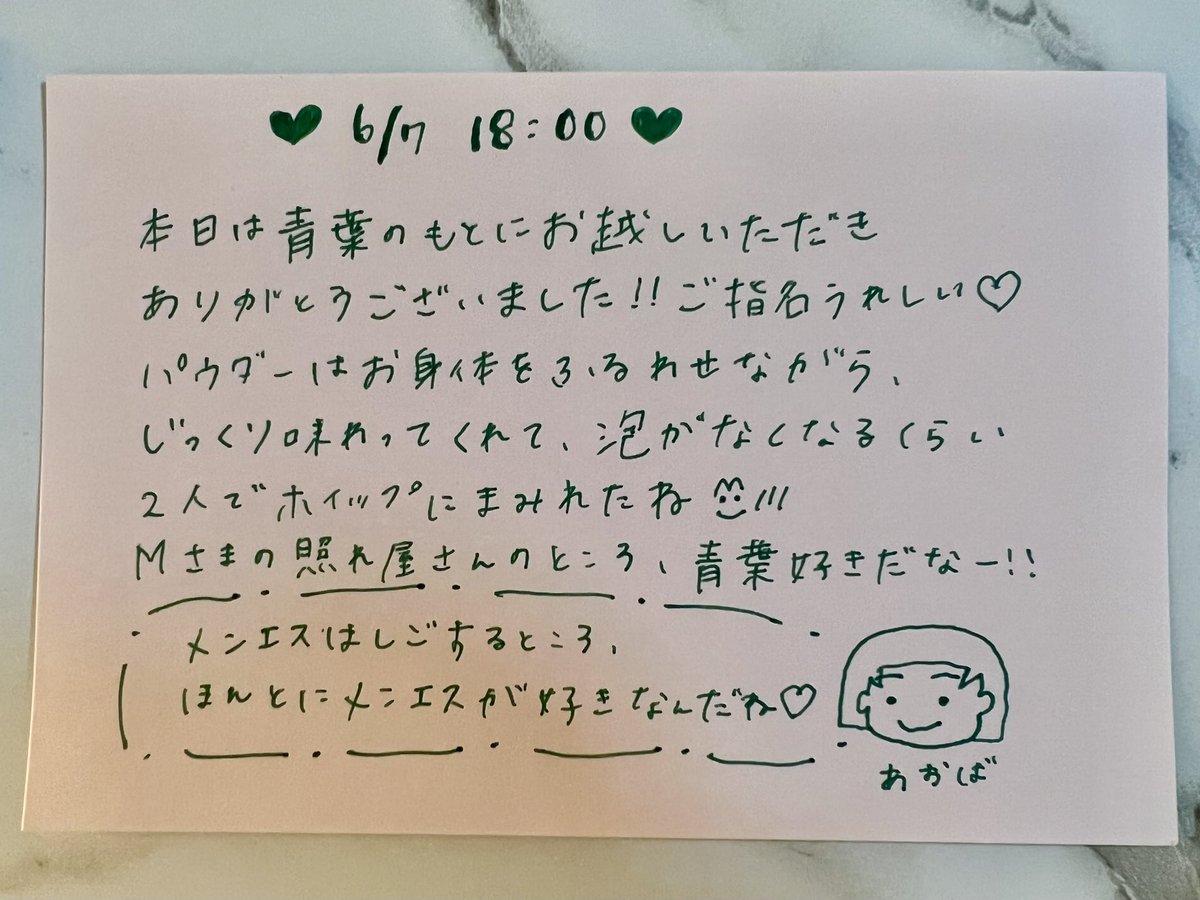 💚 6/7 18:00 💚
本日は青葉のもとにお越しいただき
ありがとうございました!!ご指名うれしい♡
パウダーはお身体をふるわせながら、
じっくり味わってくれて、泡がなくなるくらい
2人でホイップにまみれたね
Mさまの照れ屋さんのところ、青葉好きだなー!!
メンエスはしごするところ、
ほんとにメンエスが好きなんだね♡
あおば